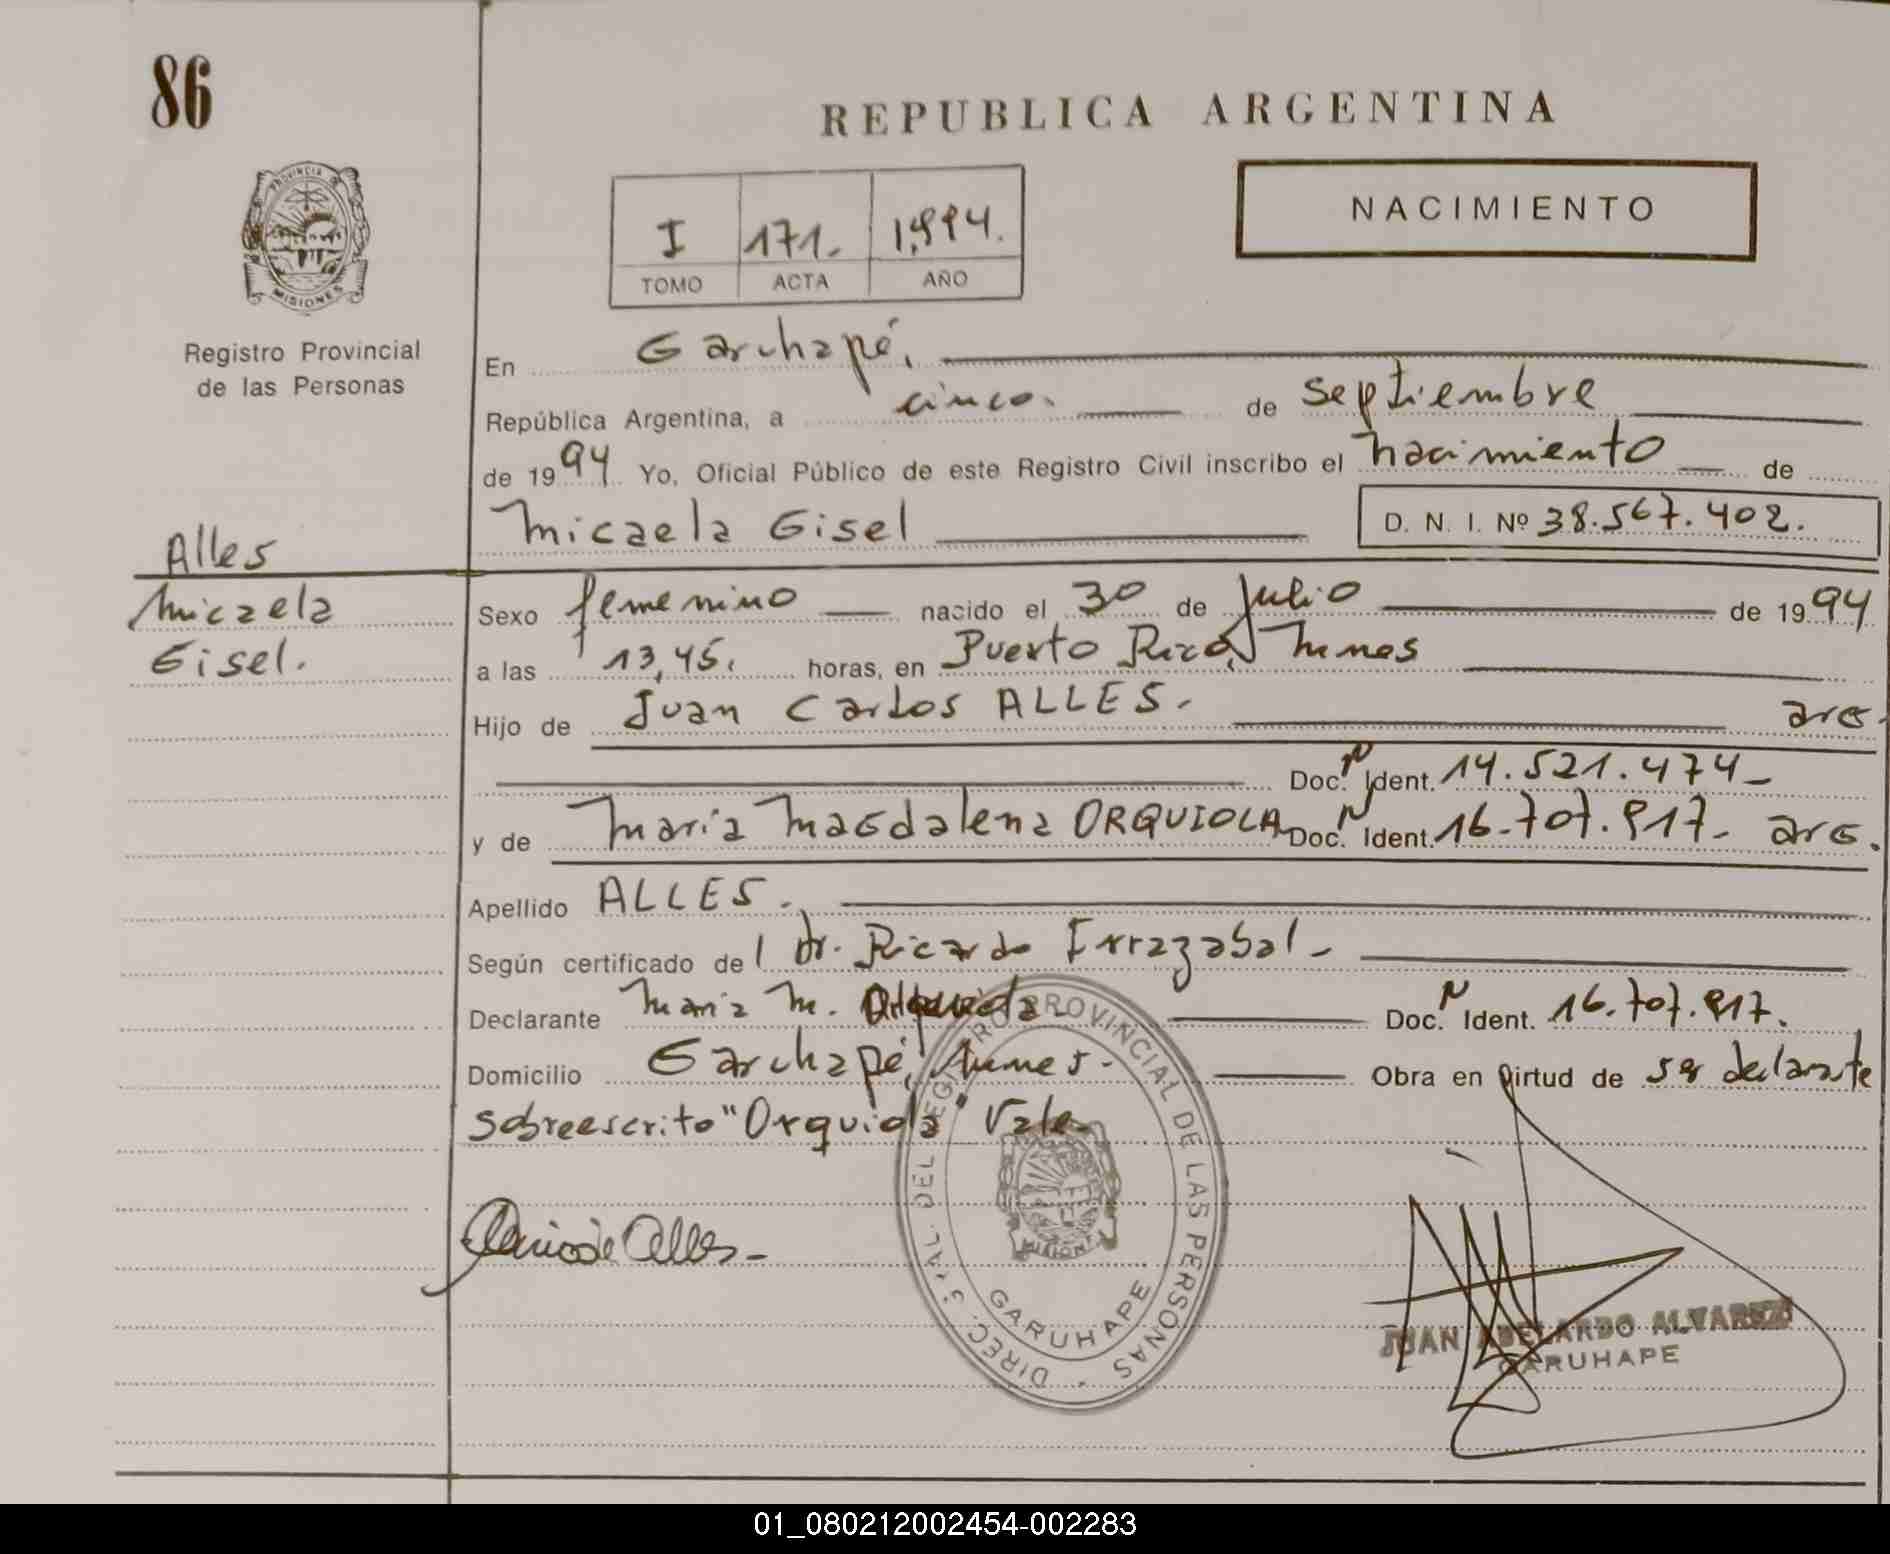 86
REPUBLICA ARGENTINA
PROVINCIA DE
MISIONES
Registro Provincial
de las Personas
I 171. 1,994.
TOMO ACTA AÑO
NACIMIENTO
En Garuhapé,
República Argentina, a cinco. de septiembre
de 1994 Yo, Oficial Público de este Registro Civil inscribo el nacimiento de
Micaela Gisel D. N. I. Nº 38.567.402.
Alles
Micaela
Gisel.
Sexo femenino nacido el 30 de Julio de 1994
a las 13,45. horas, en Puerto Rico, Mnes
Hijo de Juan Carlos ALLES. arg.
Doc. N Ident. 14.521.474-
y de Maria Magdalena ORQUIOLA Doc. N Ident. 16.707.917- arg.
Apellido ALLES.
Según certificado del Dr. Ricardo Irrazabal-
Declarante Maria M. Orquiola Doc. N Ident. 16.707.917.
Domicilio Garuhapé, Mnes. Obra en virtud de ser declarante
sobreescrito "Orquiola" Vale
DIREC. GRAL. DEL REGISTRO PROVINCIAL DE LAS PERSONAS
MISIONES
GARUHAPE
Maria de Alles-
JUAN ABELARDO ALVAREZ
GARUHAPE
01_080212002454-002283